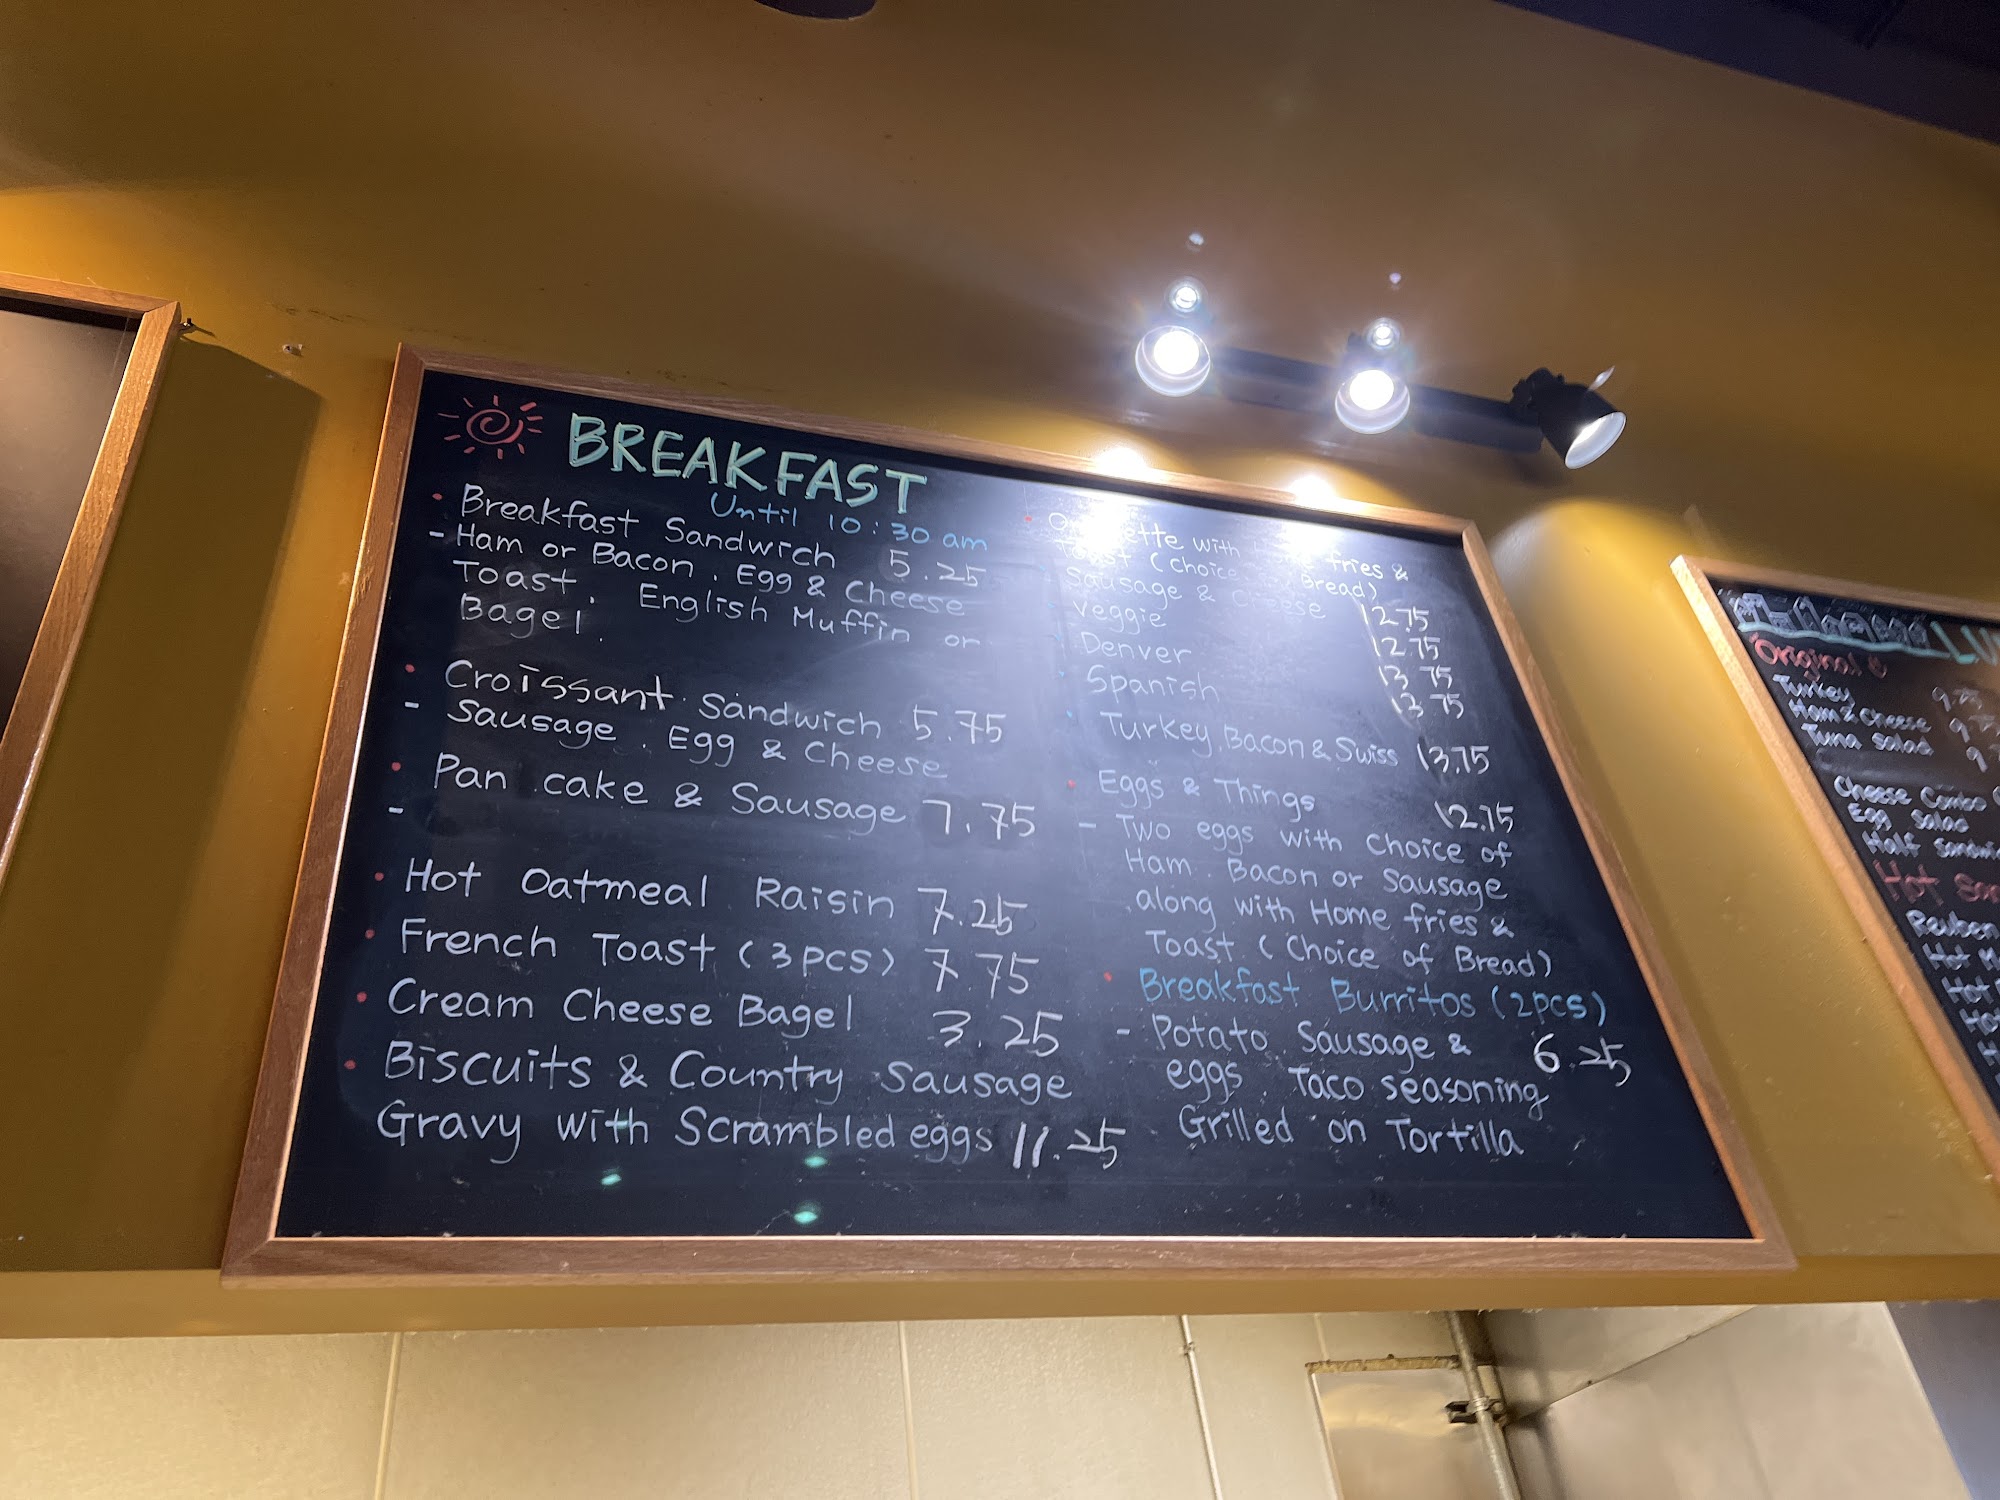 BREAKFAST
Until 10:30 am
• Breakfast Sandwich 5.25
- Ham or Bacon. Egg & Cheese
Toast. English Muffin or
Bagel.
• Croissant Sandwich 5.75
- Sausage. Egg & Cheese
• Pan cake & Sausage 7.75
-
• Hot Oatmeal Raisin 7.25
• French Toast (3pcs) 7.75
• Cream Cheese Bagel 3.25
• Biscuits & Country Sausage
Gravy with Scrambled eggs 11.25
• with fries &
Toast (Choice Bread)
Sausage & Cheese 12.75
Veggie 12.75
Denver 13.75
Spanish 13.75
Turkey, Bacon & Swiss 13.75
• Eggs & Things 12.75
- Two eggs with choice of
Ham. Bacon or Sausage
along with Home fries &
Toast (Choice of Bread)
• Breakfast Burritos (2pcs)
- Potato. Sausage & 6.25
eggs. Taco seasoning
Grilled on Tortilla
Original
Turkey
Ham & Cheese
Tuna Salad
Cheese Combo
Egg Salad
Half
Hot
Reuben
Hot
Hot